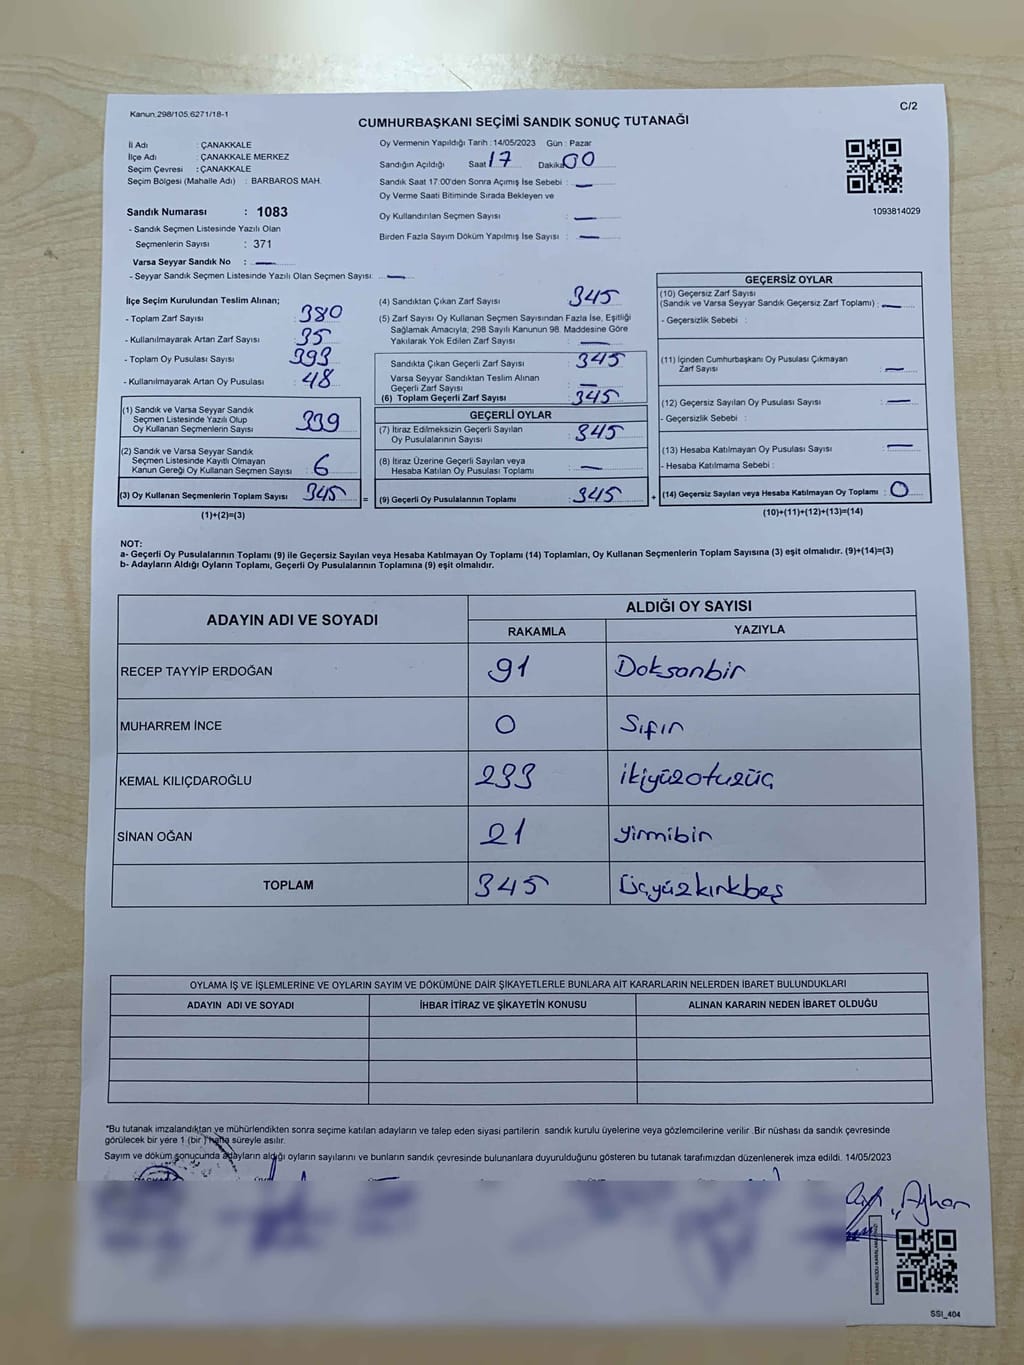 Kanun.298/105,6271/18-1
C/2
CUMHURBAŞKANI SEÇİMİ SANDIK SONUÇ TUTANAĞI
İl Adı : ÇANAKKALE
İlçe Adı : ÇANAKKALE MERKEZ
Seçim Çevresi : ÇANAKKALE
Seçim Bölgesi (Mahalle Adı) : BARBAROS MAH.
Oy Vermenin Yapıldığı Tarih : 14/05/2023 Gün : Pazar
Sandığın Açıldığı Saat 17 Dakika 00
Sandık Saat 17.00'den Sonra Açımış İse Sebebi : —
Oy Verme Saati Bitiminde Sırada Bekleyen ve
Oy Kullandırılan Seçmen Sayısı : —
Birden Fazla Sayım Döküm Yapılmış İse Sayısı : —
1093814029
Sandık Numarası : 1083
- Sandık Seçmen Listesinde Yazılı Olan
Seçmenlerin Sayısı : 371
Varsa Seyyar Sandık No : —
- Seyyar Sandık Seçmen Listesinde Yazılı Olan Seçmen Sayısı: —
İlçe Seçim Kurulundan Teslim Alınan;
- Toplam Zarf Sayısı : 380
- Kullanılmayarak Artan Zarf Sayısı : 35
- Toplam Oy Pusulası Sayısı : 393
- Kullanılmayarak Artan Oy Pusulası : 48
(1) Sandık ve Varsa Seyyar Sandık
Seçmen Listesinde Yazılı Olup
Oy Kullanan Seçmenlerin Sayısı : 339
(2) Sandık ve Varsa Seyyar Sandık
Seçmen Listesinde Kayıtlı Olmayan
Kanun Gereği Oy Kullanan Seçmen Sayısı : 6
(3) Oy Kullanan Seçmenlerin Toplam Sayısı : 345 =
(1)+(2)=(3)
(4) Sandıktan Çıkan Zarf Sayısı : 345
(5) Zarf Sayısı Oy Kullanan Seçmen Sayısından Fazla İse, Eşitliği
Sağlamak Amacıyla; 298 Sayılı Kanunun 98. Maddesine Göre
Yakılarak Yok Edilen Zarf Sayısı : —
Sandıkta Çıkan Geçerli Zarf Sayısı : 345
Varsa Seyyar Sandıktan Teslim Alınan
Geçerli Zarf Sayısı : —
(6) Toplam Geçerli Zarf Sayısı : 345
GEÇERLİ OYLAR
(7) İtiraz Edilmeksizin Geçerli Sayılan
Oy Pusulalarının Sayısı : 345
(8) İtiraz Üzerine Geçerli Sayılan veya
Hesaba Katılan Oy Pusulası Toplamı : —
(9) Geçerli Oy Pusulalarının Toplamı : 345 +
GEÇERSİZ OYLAR
(10) Geçersiz Zarf Sayısı
(Sandık ve Varsa Seyyar Sandık Geçersiz Zarf Toplamı) : —
- Geçersizlik Sebebi :
(11) İçinden Cumhurbaşkanı Oy Pusulası Çıkmayan
Zarf Sayısı : —
(12) Geçersiz Sayılan Oy Pusulası Sayısı : —
- Geçersizlik Sebebi :
(13) Hesaba Katılmayan Oy Pusulası Sayısı : —
- Hesaba Katılmama Sebebi :
(14) Geçersiz Sayılan veya Hesaba Katılmayan Oy Toplamı : 0
(10)+(11)+(12)+(13)=(14)
NOT:
a- Geçerli Oy Pusulalarının Toplamı (9) ile Geçersiz Sayılan veya Hesaba Katılmayan Oy Toplamı (14) Toplamları, Oy Kullanan Seçmenlerin Toplam Sayısına (3) eşit olmalıdır. (9)+(14)=(3)
b- Adayların Aldığı Oyların Toplamı, Geçerli Oy Pusulalarının Toplamına (9) eşit olmalıdır.
ADAYIN ADI VE SOYADI
ALDIĞI OY SAYISI
RAKAMLA YAZIYLA
RECEP TAYYİP ERDOĞAN 91 Doksanbir
MUHARREM İNCE 0 Sıfır
KEMAL KILIÇDAROĞLU 233 ikiyüzotuzüç
SİNAN OĞAN 21 yirmibir
TOPLAM 345 Üçyüzkırkbeş
OYLAMA İŞ VE İŞLEMLERİNE VE OYLARIN SAYIM VE DÖKÜMÜNE DAİR ŞİKAYETLERLE BUNLARA AİT KARARLARIN NELERDEN İBARET BULUNDUKLARI
ADAYIN ADI VE SOYADI İHBAR İTİRAZ VE ŞİKAYETİN KONUSU ALINAN KARARIN NEDEN İBARET OLDUĞU
*Bu tutanak imzalandıktan ve mühürlendikten sonra seçime katılan adayların ve talep eden siyasi partilerin sandık kurulu üyelerine veya gözlemcilerine verilir .Bir nüshası da sandık çevresinde
görülecek bir yere 1 (bir ) hafta süreyle asılır.
Sayım ve döküm sonucunda adayların aldığı oyların sayılarını ve bunların sandık çevresinde bulunanlara duyurulduğunu gösteren bu tutanak tarafımızdan düzenlenerek imza edildi. 14/05/2023
Ayhan
SSI_404